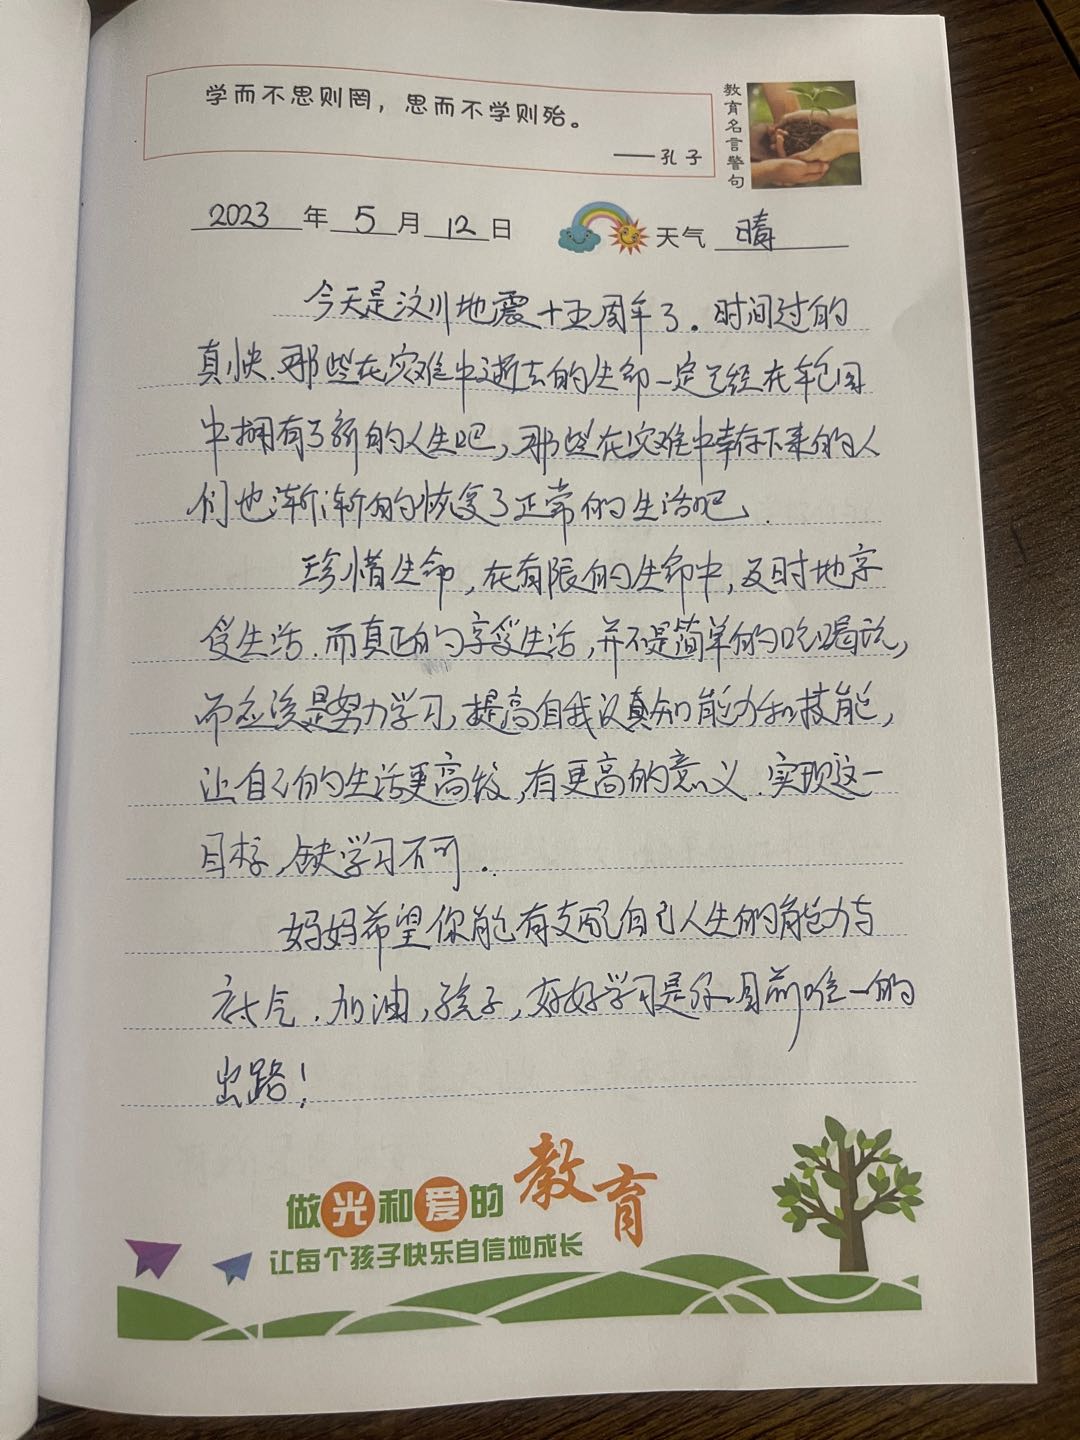 学而不思则罔，思而不学则殆。
——孔子
教育名言警句
2023年5月12日 天气 晴
今天是汶川地震十五周年了．时间过的
真快．那些在灾难中逝去的生命一定已经在轮回
中拥有了新的人生吧，那些在灾难中幸存下来的人
们也渐渐的恢复了正常的生活吧．
珍惜生命，在有限的生命中，及时地享
受生活．而真正的享受生活，并不是简单的吃喝玩，
而应该是努力学习，提高自我认真知能力和技能，
让自己的生活更高级，有更高的意义．实现这一
目标，缺学习不可．
妈妈希望你能有支配自己人生的能力与
底气．加油，孩子，好好学习是你目前唯一的
出路！
做光和爱的教育
让每个孩子快乐自信地成长